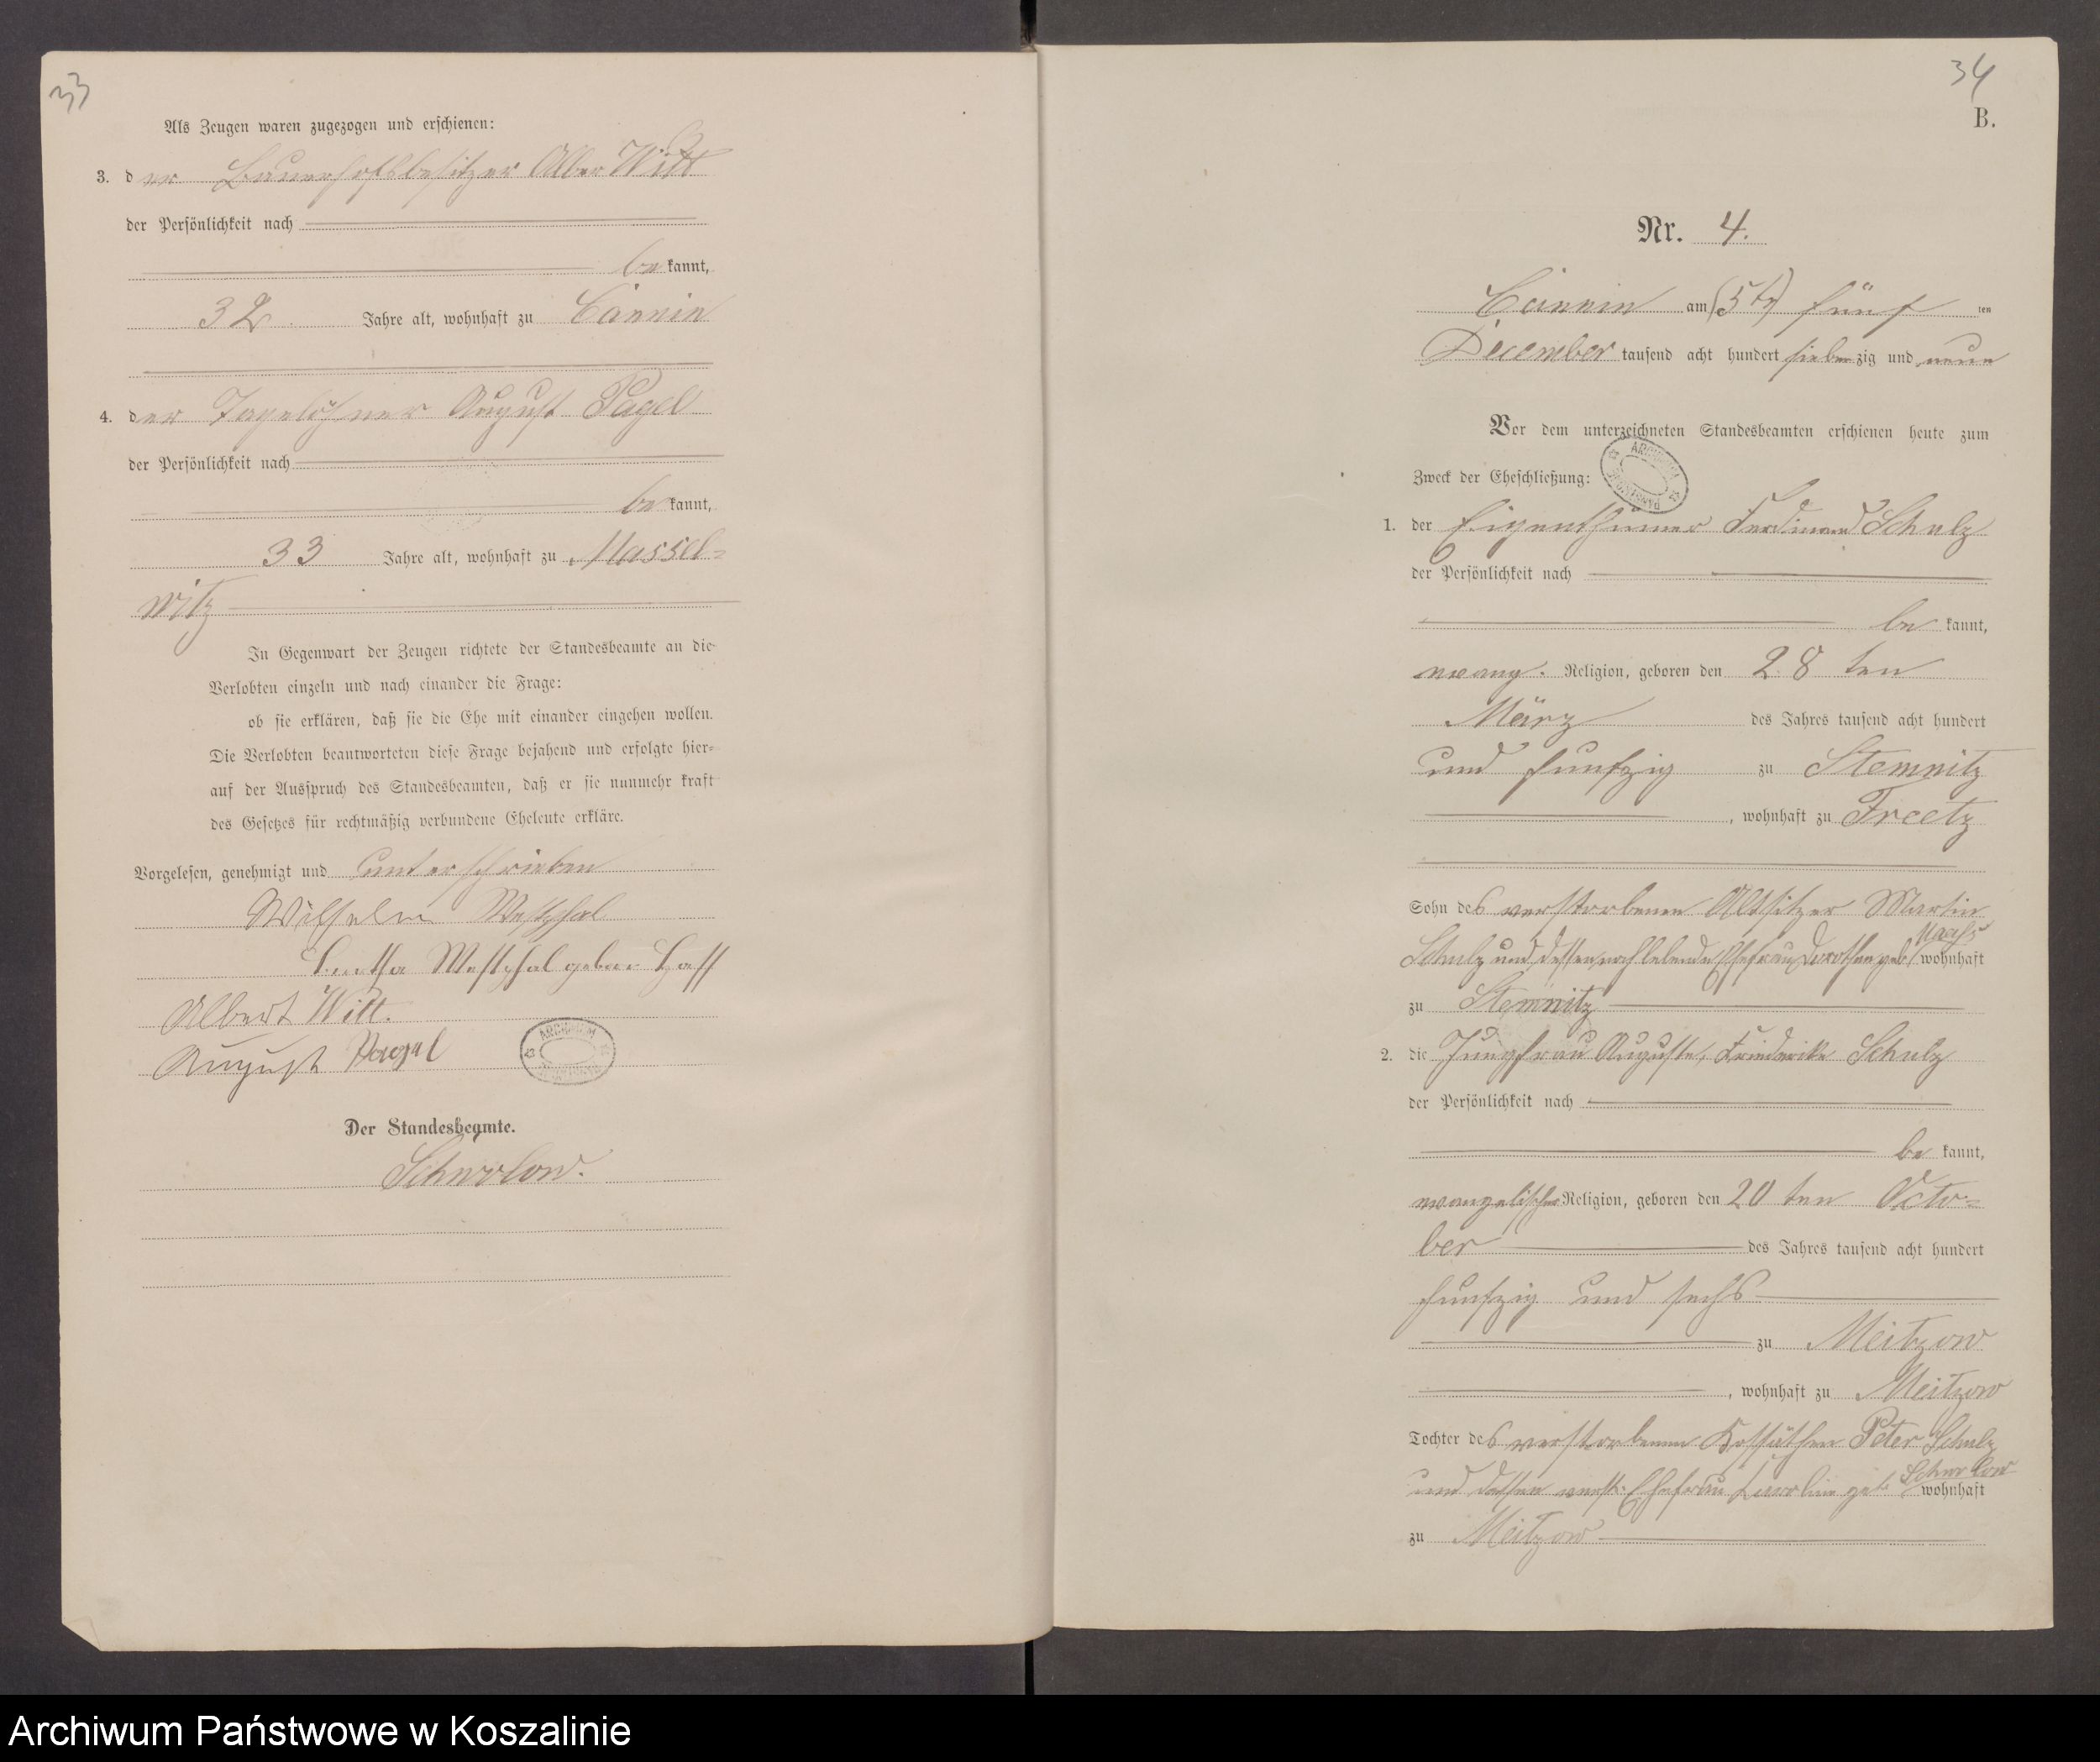 33
Als Zeugen waren zugezogen und erschienen:
3. der Bauerhofsbesitzer Alber Witt
der Persönlichkeit nach
bekannt,
32 Jahre alt, wohnhaft zu Cannin
4. der Tagelöhner August Pagel
der Persönlichkeit nach
bekannt,
33 Jahre alt, wohnhaft zu Massel=
witz
In Gegenwart der Zeugen richtete der Standesbeamte an die
Verlobten einzeln und nach einander die Frage:
ob sie erklären, daß sie die Ehe mit einander eingehen wollen.
Die Verlobten beantworteten diese Frage bejahend und erfolgte hier=
auf der Ausspruch des Standesbeamten, daß er sie nunmehr kraft
des Gesetzes für rechtmäßig verbundene Eheleute erkläre.
Vorgelesen, genehmigt und unterschrieben
Wilhelm Westphal
Westphal gebor
Albert Witt.
August Pagel
ARCHIWUM
Der Standesbeamte.
Schwolow.
34
B.
Nr. 4.
Cannin am (5t) fünf ten
December tausend acht hundert siebenzig und neun
Vor dem unterzeichneten Standesbeamten erschienen heute zum
Zweck der Eheschließung:
1. der Eigenthümer Ferdinand Schulz
der Persönlichkeit nach
bekannt,
evang. Religion, geboren den 28 ten
März des Jahres tausend acht hundert
und funfzig zu Stemnitz
, wohnhaft zu Freetz
Sohn des verstorbenen Altsitzer Martin
Schulz und dessen noch lebende Ehefrau Dorothea geb. wohnhaft
zu Stemnitz
2. die Jungfrau Auguste, Friederike Schulz
der Persönlichkeit nach
bekannt,
evangelischer Religion, geboren den 20 ten Octo=
ber des Jahres tausend acht hundert
funfzig und sechs
zu Meitzow
, wohnhaft zu Meitzow
Tochter des verstorbenen Kossäthen Peter Schulz
und dessen verst. Ehefrau Karoline geb. Schwolow wohnhaft
zu Meitzow
Archiwum Państwowe w Koszalinie